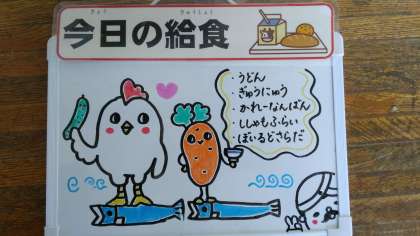 きょう きゅうしょく
今日の給食
・うどん
・ぎゅうにゅう
・かれーなんばん
・ししゃもふらい
・ぼいるどさらだ